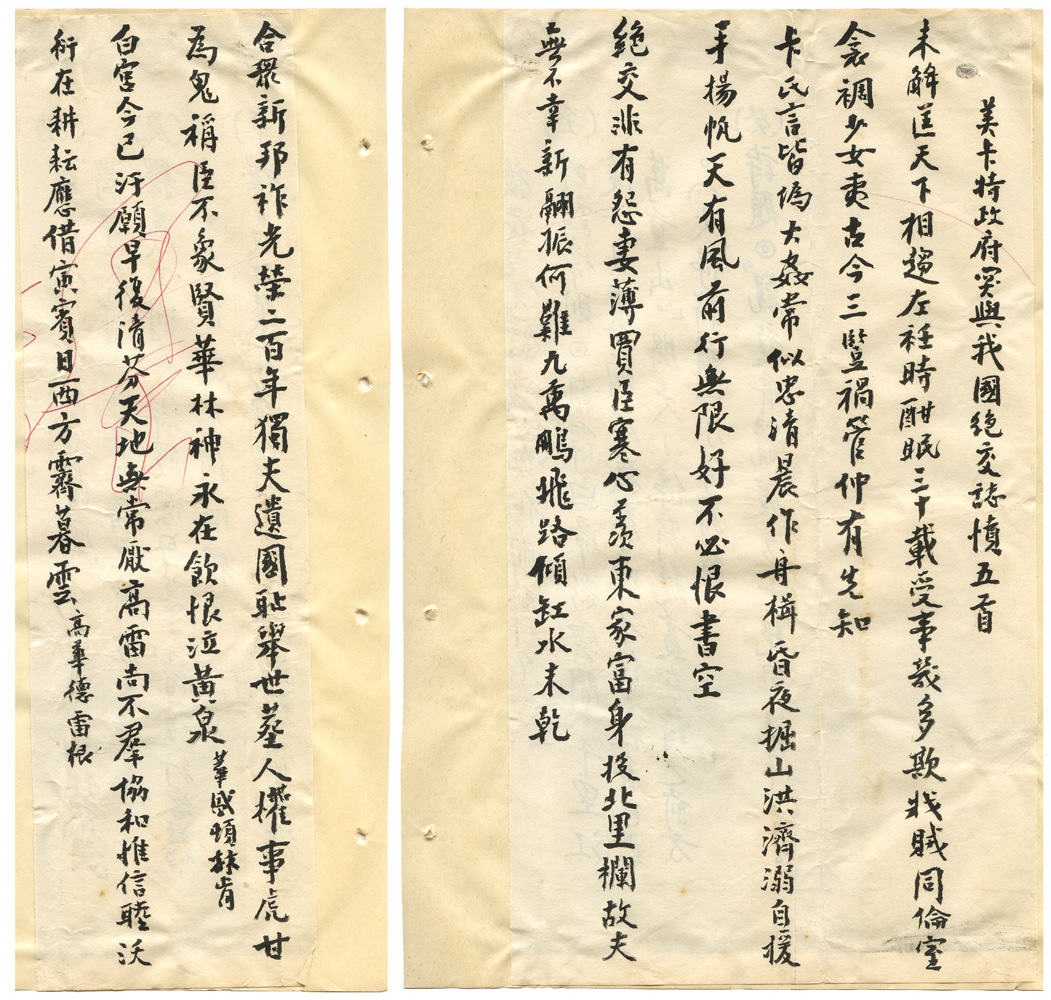 美卡特政府突與我國絕交誌憤五首
未解匡天下相趨左衽時酣眠三十載受事幾多欺戎賊同倫室
衾裯少女夷古今三豎禍管仲有先知
卡氏言皆偽大姦常似忠清晨作舟楫昏夜掘山洪濟溺自援
手揚帆天有風前行無限好不必恨書空
絕交非有怨妻薄買臣寒心羨東家富身投北里欄故夫
無不幸新翮振何難九萬鵬飛路傾缸水未乾
合眾新邦祚光榮二百年獨夫遺國恥舉世塟人權事虎甘
為鬼稱臣不象賢華林神永在飲恨泣黃泉華盛頓林肯
白宮今已汙願早復清芬天地無常厭高雷尚不羣協和惟信睦沃
衍在耕耘應借寅賓日西方霽暮雲高華德雷根